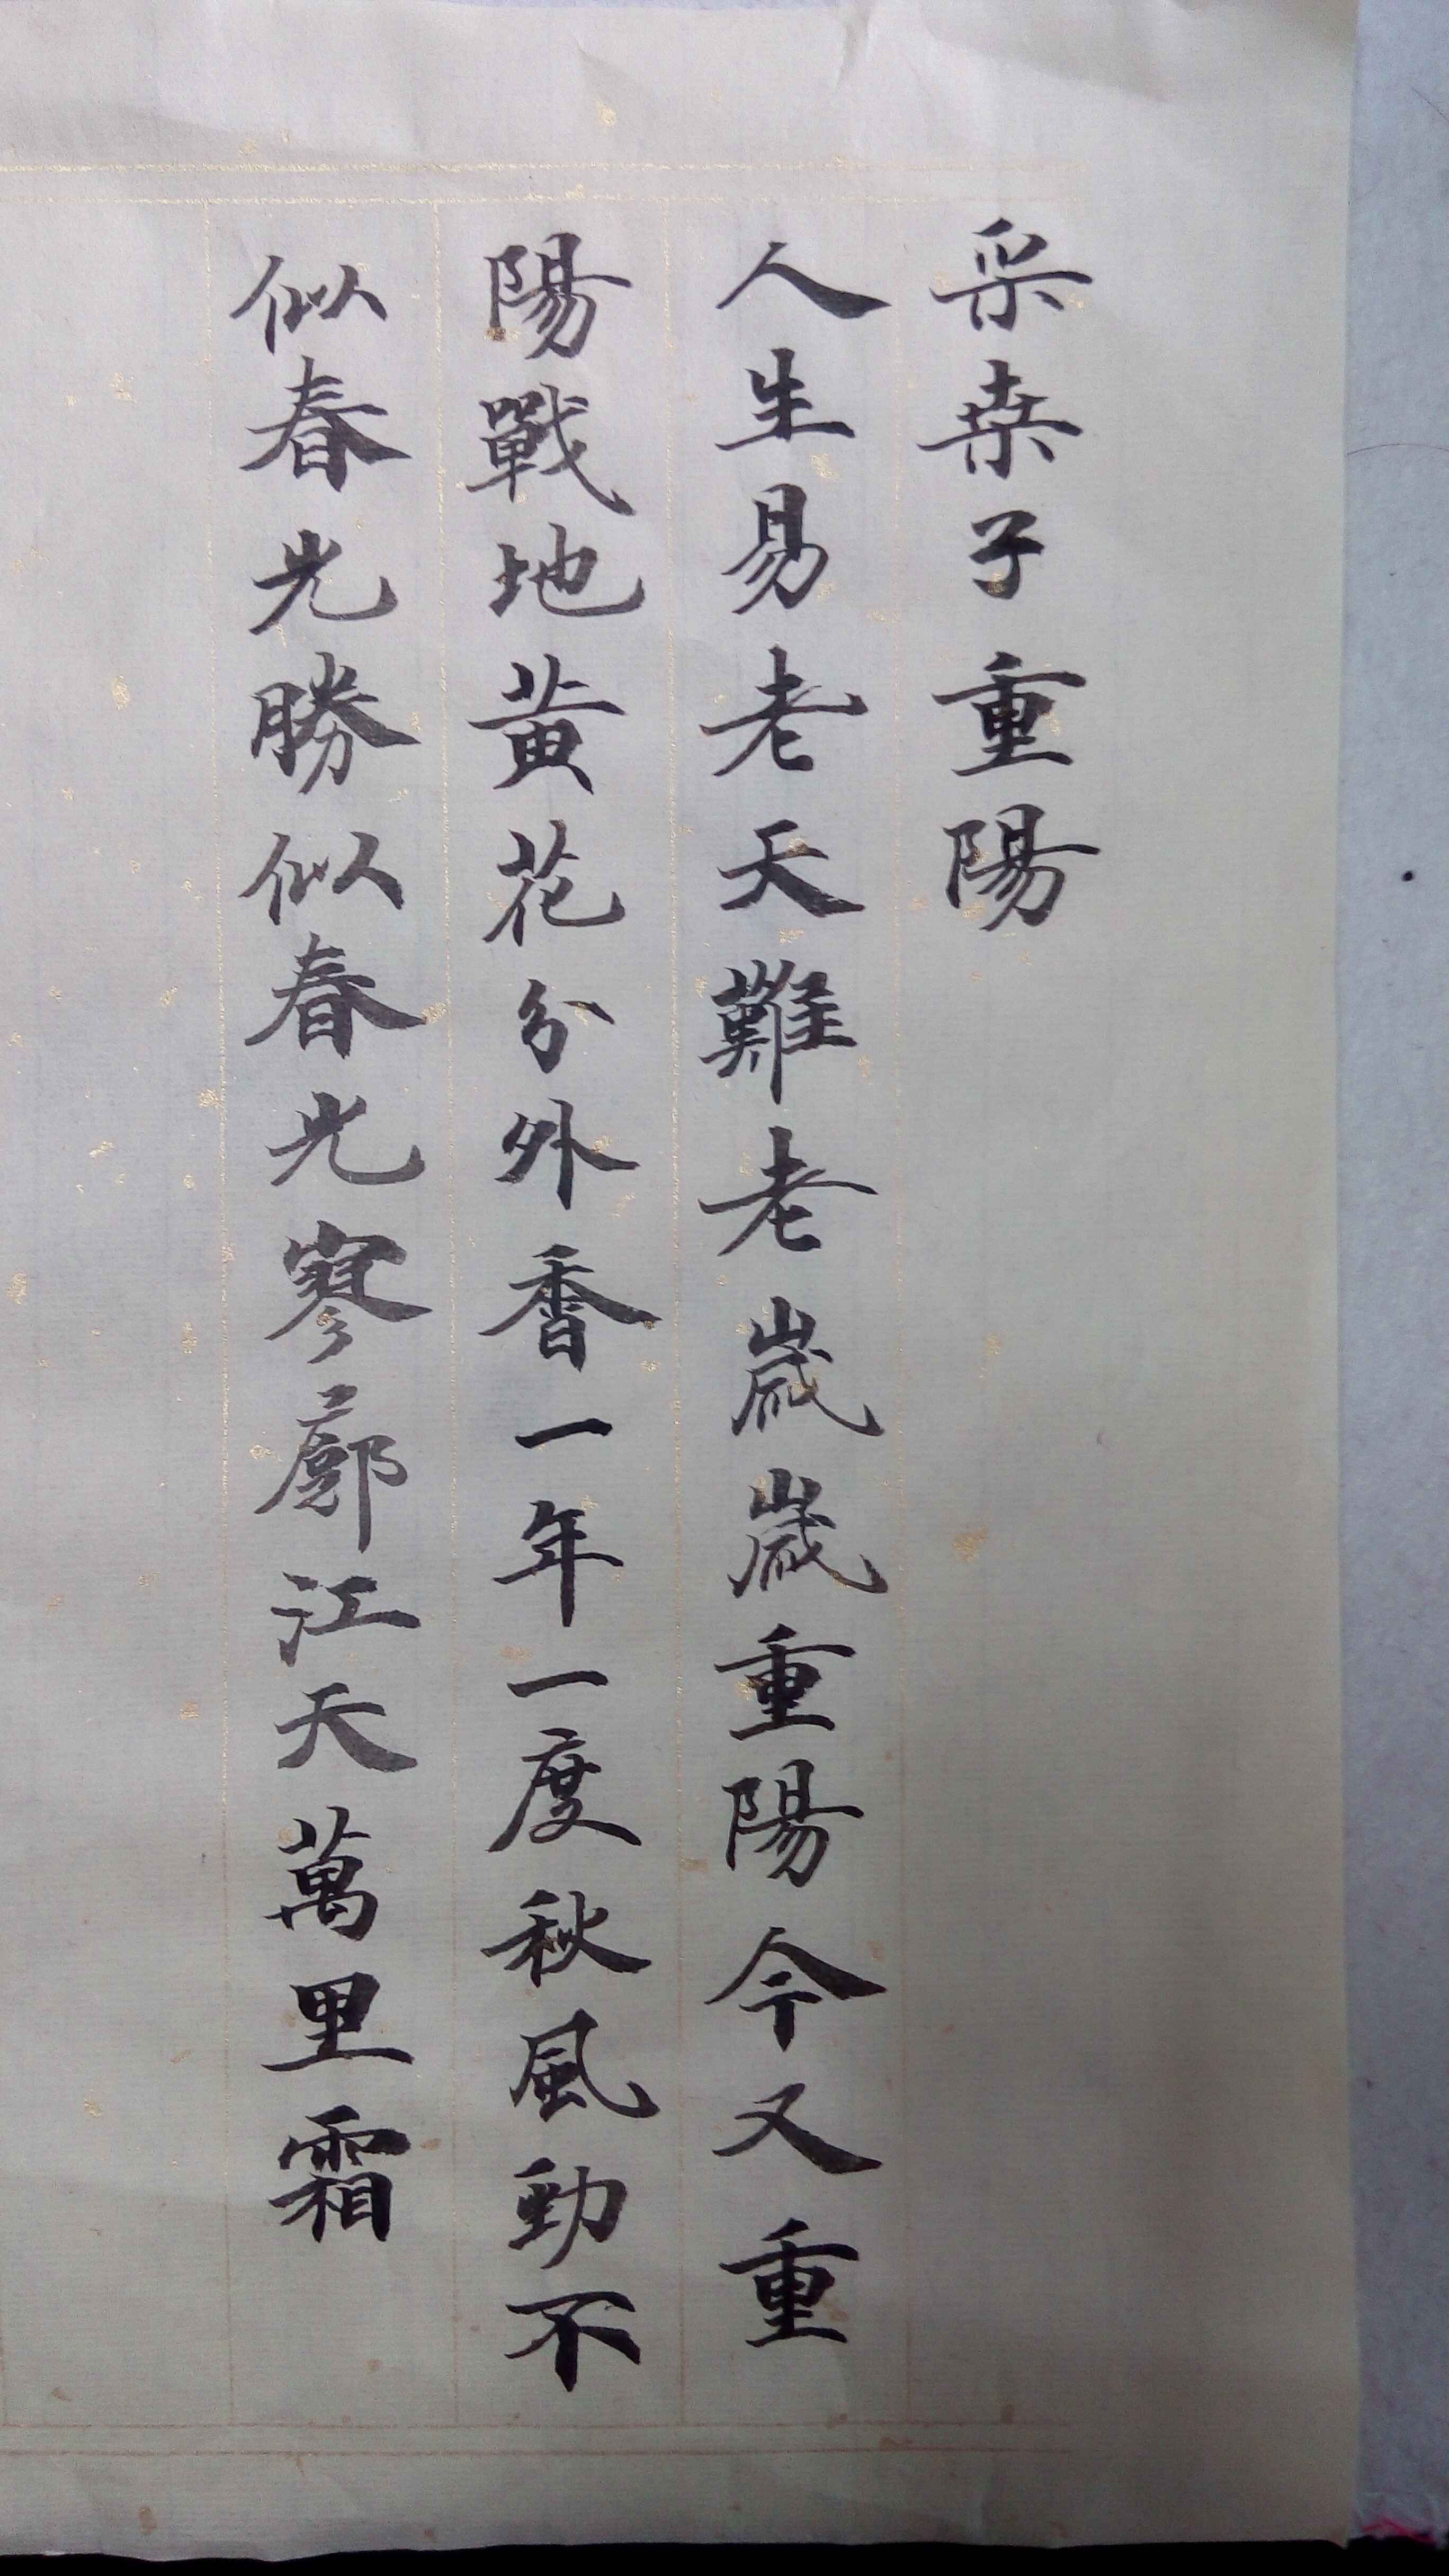 采桒子重陽
人生易老天難老歲歲重陽今又重
陽戰地黃花分外香一年一度秋風勁不
似春光勝似春光寥廓江天萬里霜